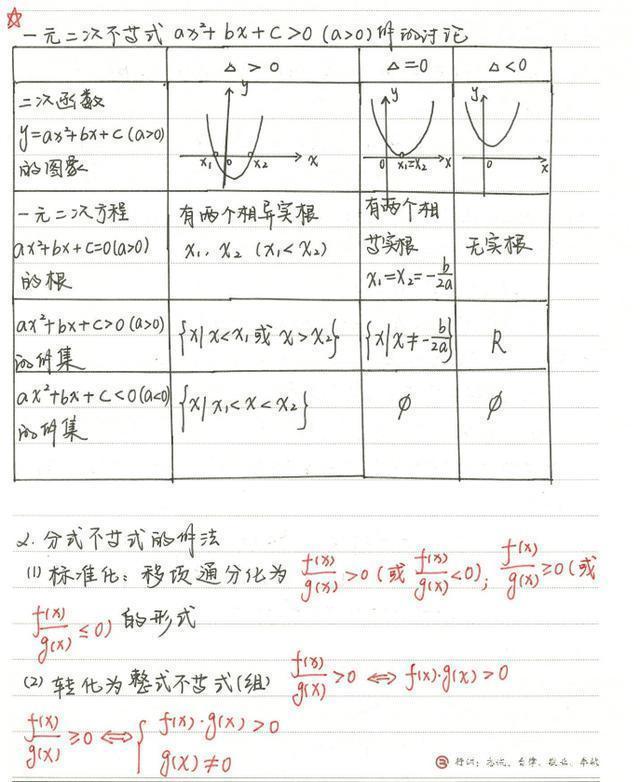 一元二次不等式 ax²+bx+c>0 (a>0)解的讨论
△>0 △=0 △<0
二次函数
y=ax²+bx+c (a>0)
的图象
y x₁ 0 x₂ x
y 0 x₁=x₂ x
y 0 x
一元二次方程
ax²+bx+c=0(a>0)
的根
有两个相异实根
x₁, x₂ (x₁<x₂)
有两个相
等实根
x₁=x₂=-b/2a
无实根
ax²+bx+c>0 (a>0)
的解集
{x|x<x₁或 x>x₂}
{x|x≠-b/2a}
R
ax²+bx+c<0(a<0)
的解集
{x|x₁<x<x₂}
∅
∅
2. 分式不等式的解法
(1) 标准化: 移项通分化为 f(x)/g(x)>0 (或 f(x)/g(x)<0); f(x)/g(x)≥0 (或
f(x)/g(x)≤0) 的形式
(2) 转化为整式不等式(组) f(x)/g(x)>0 ⇔ f(x)·g(x)>0
f(x)/g(x)≥0 ⇔ { f(x)·g(x)>0
g(x)≠0